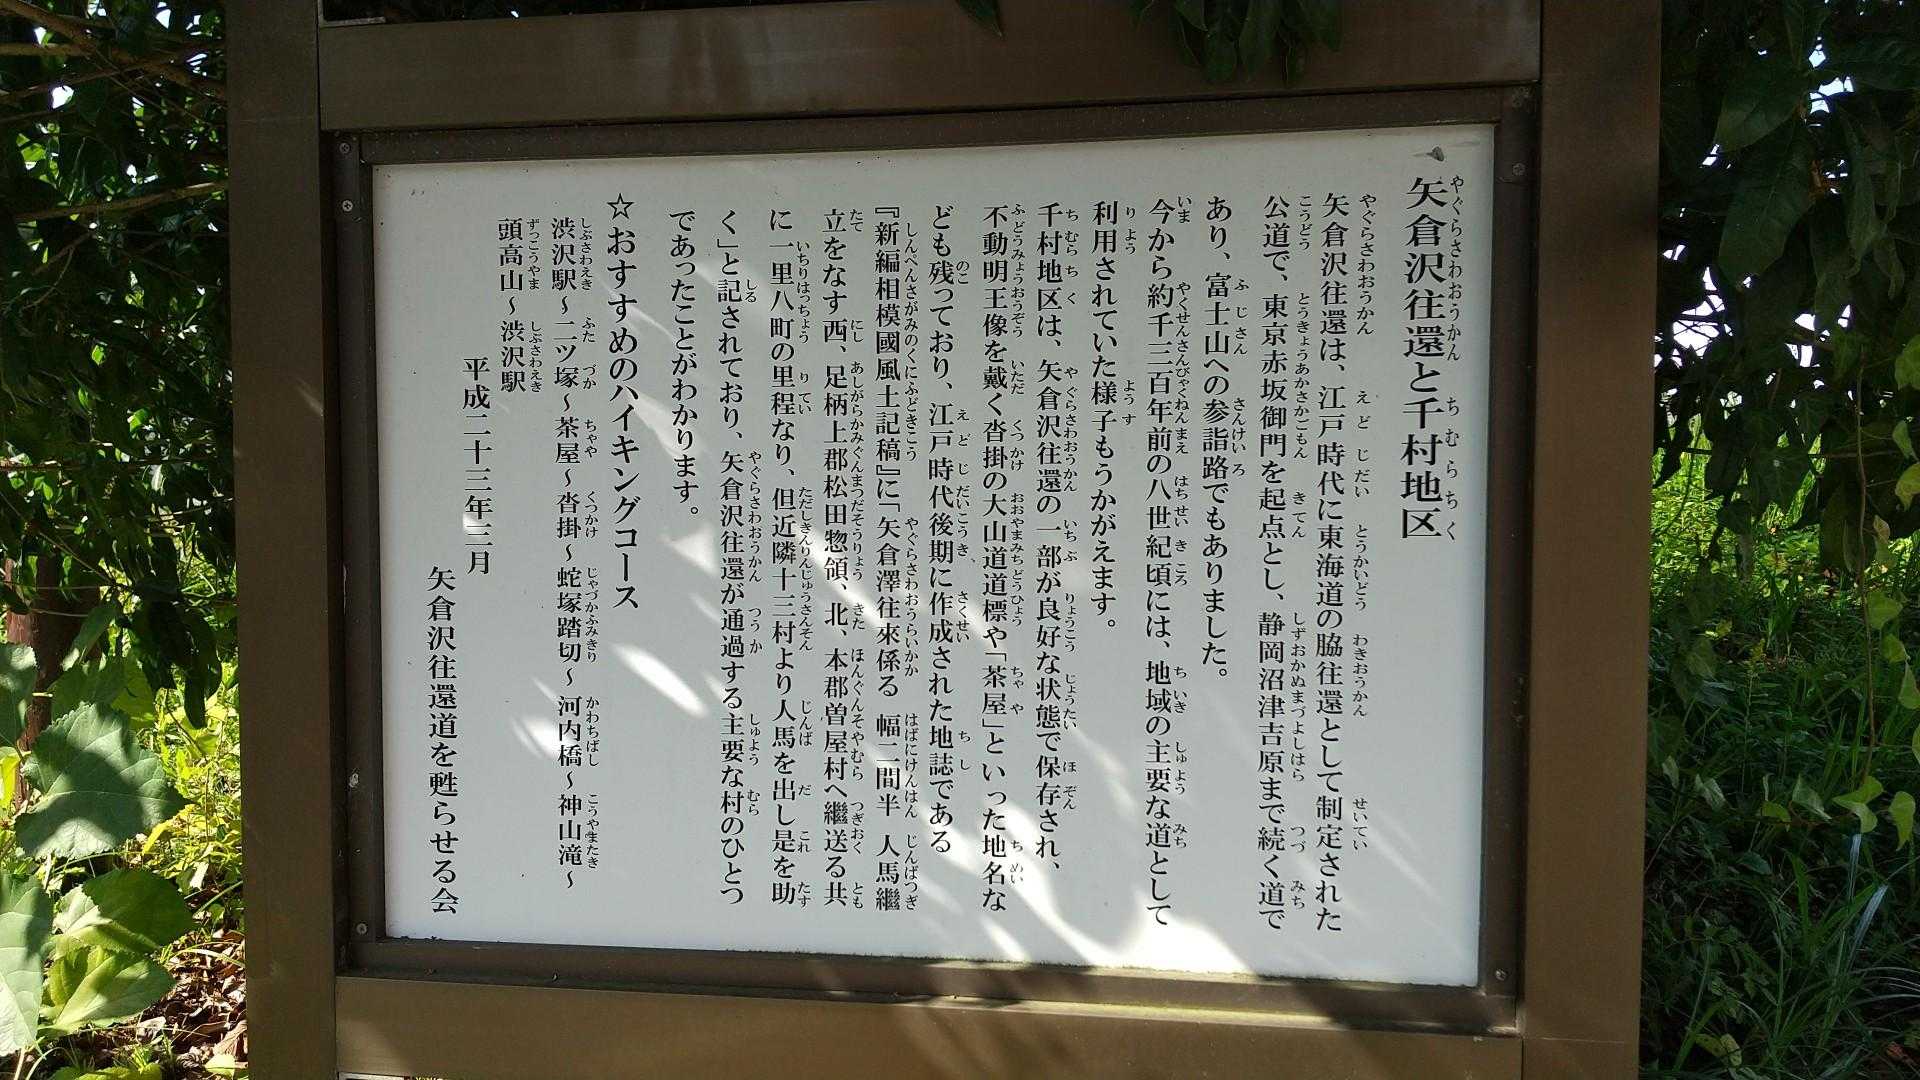 矢倉沢往還と千村地区
矢倉沢往還は、江戸時代に東海道の脇往還として制定された
公道で、東京赤坂御門を起点とし、静岡沼津吉原まで続く道で
あり、富士山への参詣路でもありました。
今から約千三百年前の八世紀頃には、地域の主要な道として
利用されていた様子もうかがえます。
千村地区は、矢倉沢往還の一部が良好な状態で保存され、
不動明王像を戴く沓掛の大山道道標や「茶屋」といった地名な
ども残っており、江戸時代後期に作成された地誌である
『新編相模國風土記稿』に「矢倉澤往來係る 幅二間半 人馬繼
立をなす西、足柄上郡松田惣領、北、本郡曽屋村へ繼送る共
に一里八町の里程なり、但近隣十三村より人馬を出し是を助
く」と記されており、矢倉沢往還が通過する主要な村のひとつ
であったことがわかります。
☆おすすめのハイキングコース
渋沢駅～二ツ塚～茶屋～沓掛～蛇塚踏切～河内橋～神山滝～
頭高山～渋沢駅
平成二十三年三月
矢倉沢往還道を甦らせる会